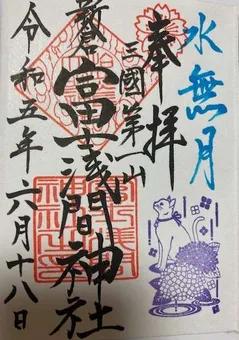 水無月
奉拝
三國第一山
新倉富士浅間神社
令和五年六月十八日